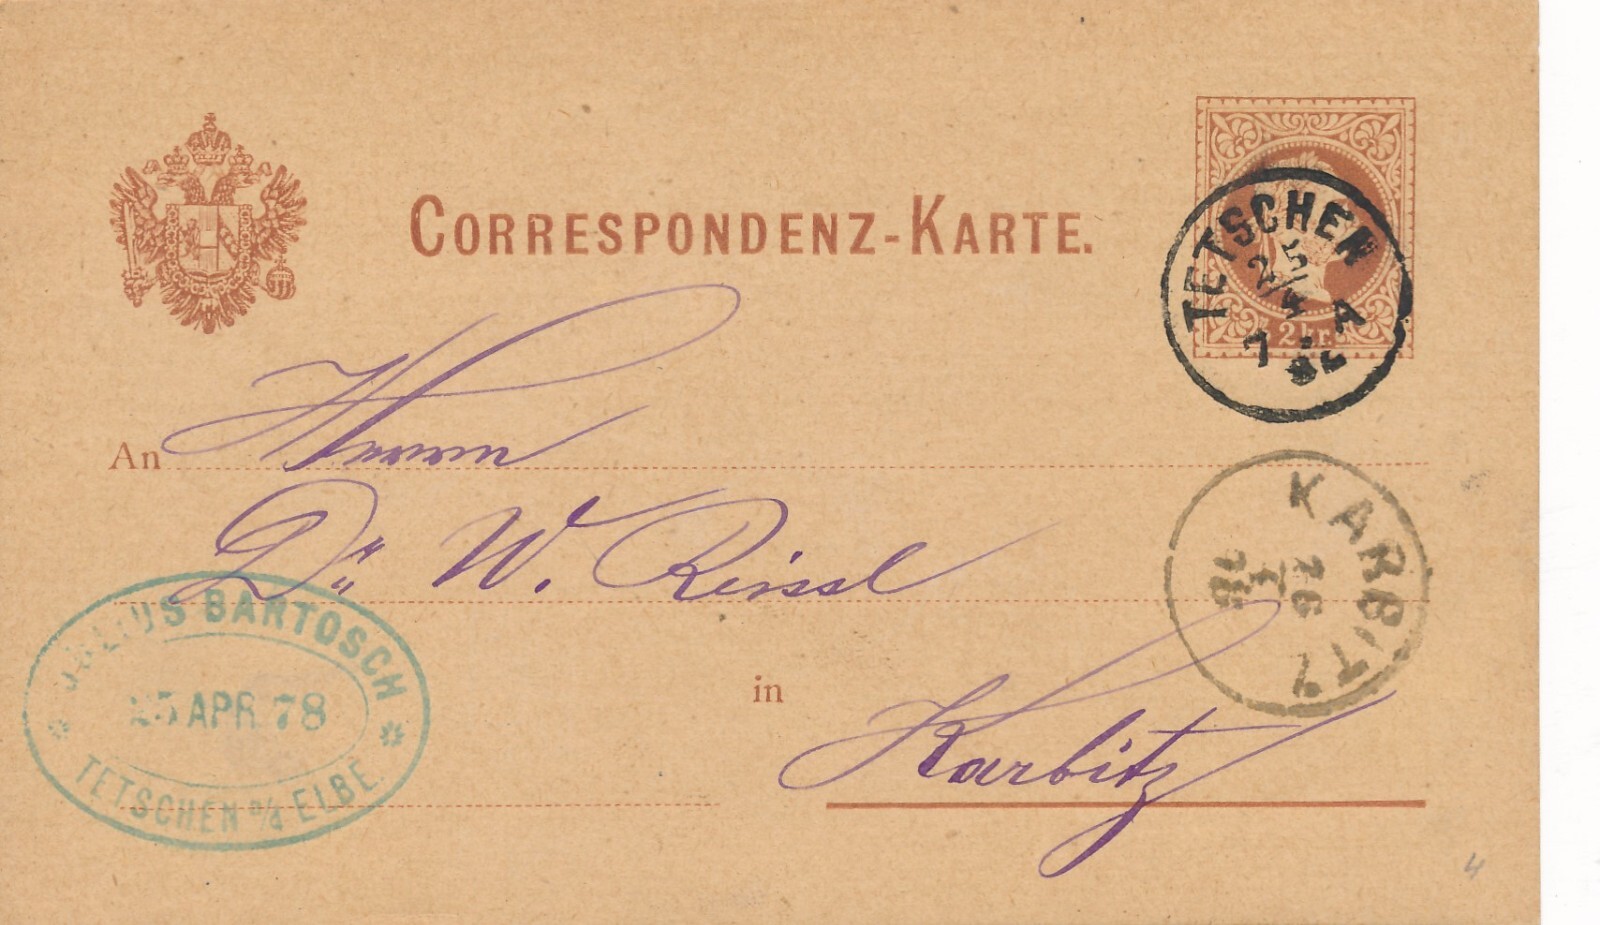 CORRESPONDENZ-KARTE.
2 kr.
TETSCHEN
25/4
7 A
An Herrn
Dr. W. Reissl
KARBITZ
26
4
78
JULIUS BARTOSCH
25 APR. 78
TETSCHEN a/d ELBE
in Karbitz
4